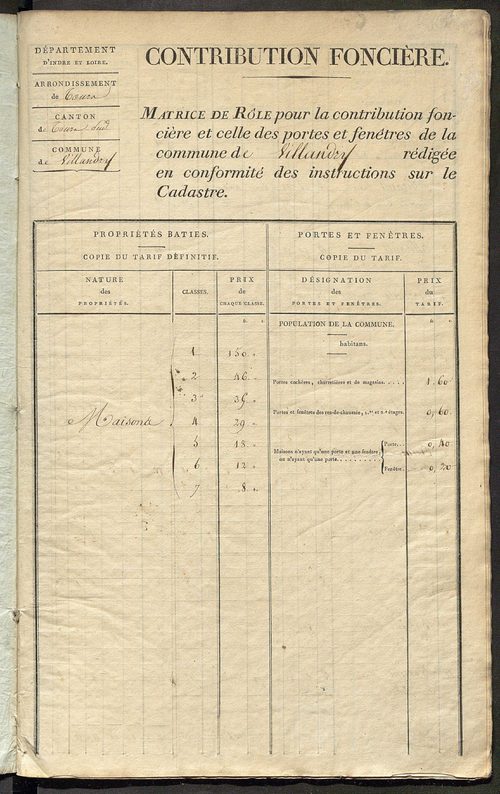 DÉPARTEMENT
D'INDRE ET LOIRE.
ARRONDISSEMENT
de Tours
CANTON
de Tours Sud
COMMUNE
de Villandry
CONTRIBUTION FONCIÈRE.
MATRICE DE RÔLE pour la contribution fon-
cière et celle des portes et fenêtres de la
commune de Villandry rédigée
en conformité des instructions sur le
Cadastre.
PROPRIÉTÉS BATIES.
COPIE DU TARIF DÉFINITIF.
NATURE
des
PROPRIÉTÉS.
CLASSES.
PRIX
de
CHAQUE CLASSE.
Maisons
1 150 "
2 46 "
3 35 "
4 29 "
5 18 "
6 12 "
7 8 "
PORTES ET FENÊTRES.
COPIE DU TARIF.
DÉSIGNATION
des
PORTES ET FENÊTRES.
PRIX
du
TARIF.
POPULATION DE LA COMMUNE.
habitans.
Portes cochères, charretières et de magasins. . . . . 1, 60
Portes et fenêtres des rez-de-chaussée, 1.er et 2.e étages. 0, 60
Maisons n'ayant qu'une porte et une fenêtre,
ou n'ayant qu'une porte. . . . . . . . . . .
Porte. . . 0, 40
Fenêtre. 0, 20